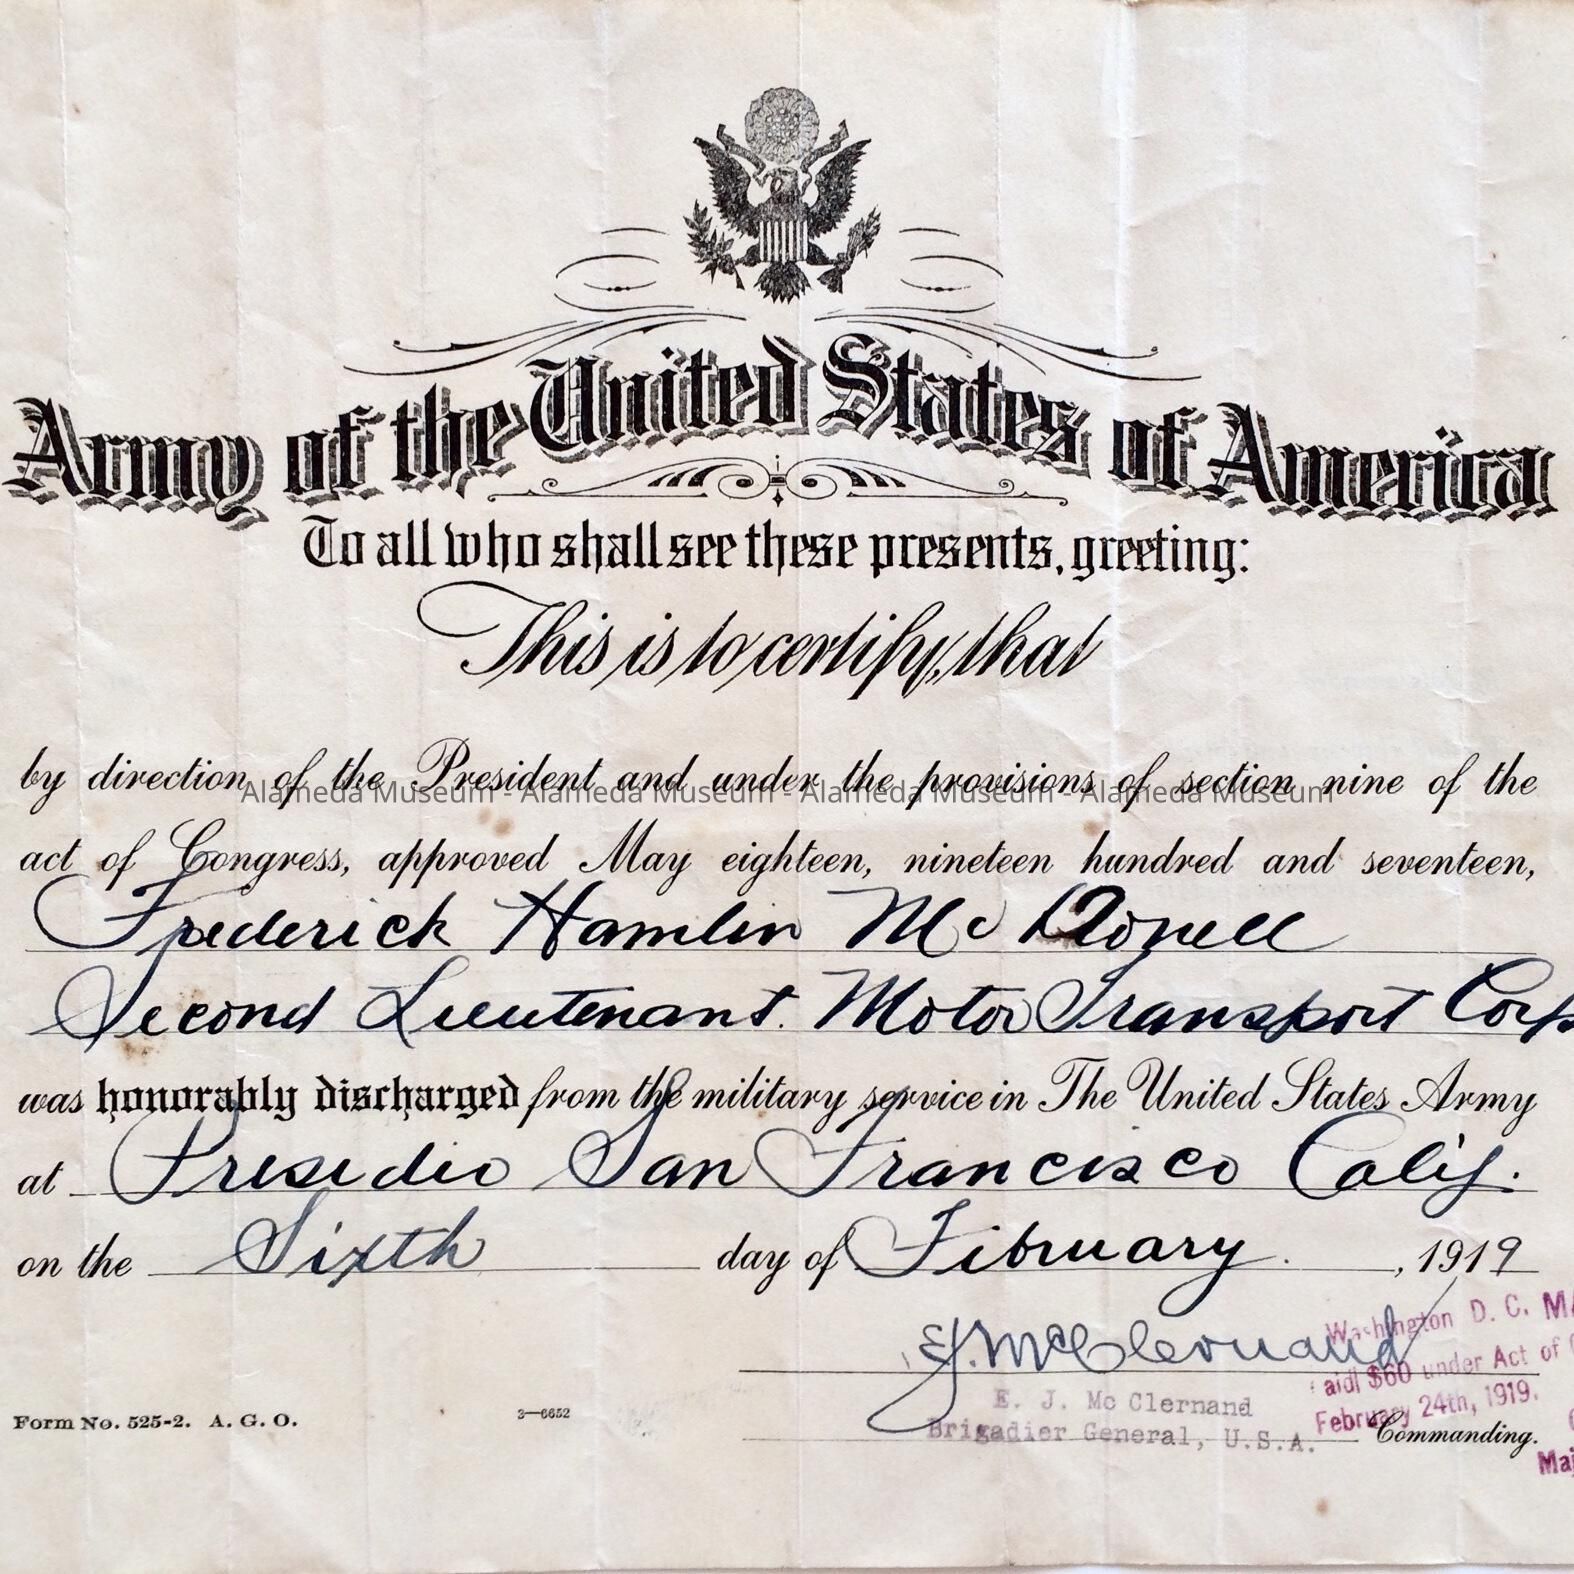 Army of the United States of America
To all who shall see these presents, greeting:
This is to certify, that
by direction of the President and under the provisions of section nine of the
Alameda Museum - Alameda Museum - Alameda Museum - Alameda Museum
act of Congress, approved May eighteen, nineteen hundred and seventeen,
Frederick Hamlin Mc Donell
Second Lieutenant. Motor Transport Corps
was honorably discharged from the military service in The United States Army
at Presidio San Francisco Calif.
on the Sixth day of February. , 1919
Washington D. C. MA
E.J. McClernand
aid $60 under Act of
E. J. Mc Clernand
February 24th, 1919.
Form No. 525-2. A. G. O. 3—6652
Brigadier General, U.S.A. Commanding.
Maj